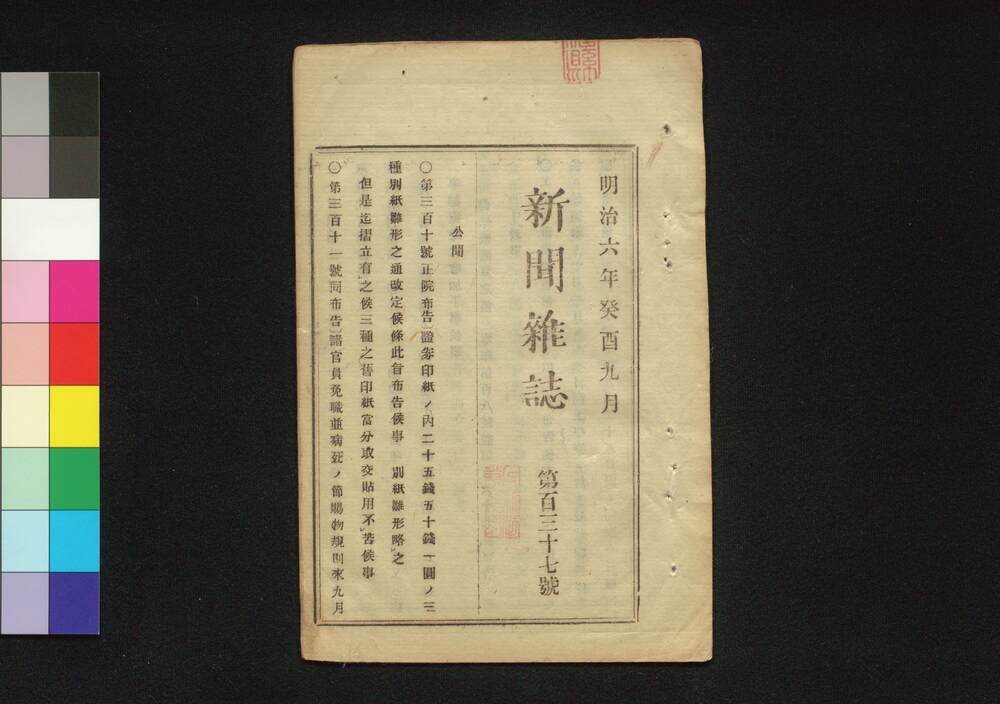 明治六年癸酉九月
新聞雜誌
第百三十七號
公聞
〇第三百十號正院布告〕證劵印紙ノ內二十五錢五十錢一圓ノ三
種別紙雛形之通改定候條此旨布告候事　別紙雛形略之
但是迄摺立有之候三種之舊印紙當分取交貼用不苦候事
〇第三百十一號同布告〕諸官員免職並病死ノ節賜物規則來九月